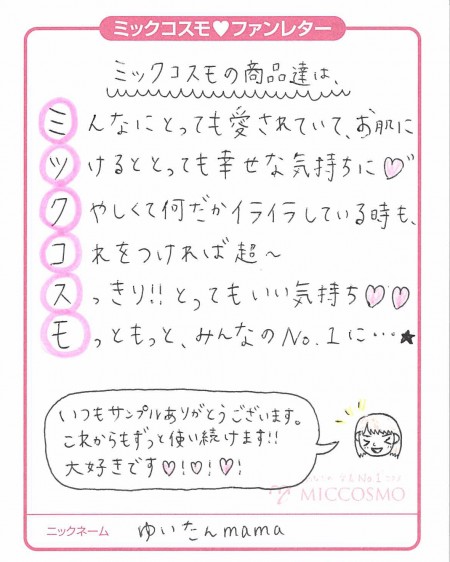 ミックコスモ♥ファンレター
ミックコスモの商品達は、
ミんなにとっても愛されていて、お肌に
ツけるととっても幸せな気持ちに♡
クやしくて何だかイライラしている時も、
コれをつければ超〜
スっきり!!とってもいい気持ち♡♡
モっともっと、みんなのNo.1に…★
いつもサンプルありがとうございます。
これからもずっと使い続けます!!
大好きです♡!♡!♡!
No1
MICCOSMO
ニックネーム ゆいたんmama